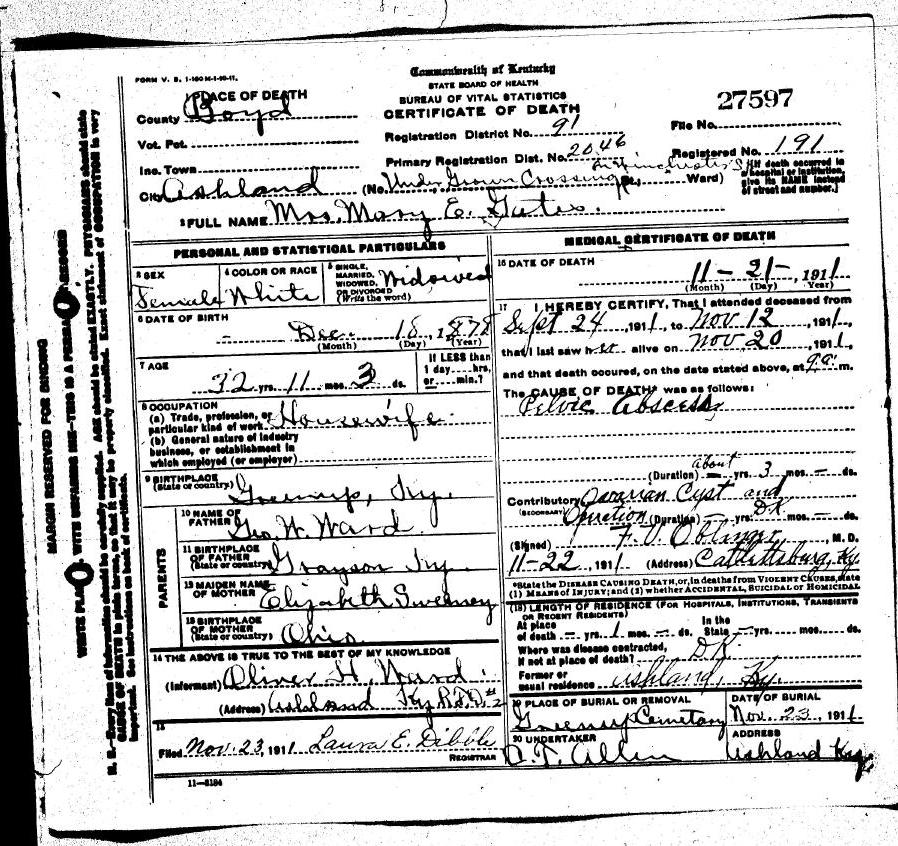 FORM V. S. 1-
Commonwealth of Kentucky
STATE BOARD OF HEALTH
BUREAU OF VITAL STATISTICS
CERTIFICATE OF DEATH
PLACE OF DEATH
County Boyd
Vot. Pct.
Inc. Town
City Ashland
Registration District No. 91
Primary Registration Dist. No. 2046
(No. Under Crossing Ward)
27597
File No.
Registered No. 191
[If death occurred in
a hospital or institution,
give its NAME instead
of street and number.]
2 FULL NAME Mrs. Mary E. Gates.
PERSONAL AND STATISTICAL PARTICULARS
3 SEX
Female
4 COLOR OR RACE
White
5 SINGLE,
MARRIED,
WIDOWED,
OR DIVORCED
(Write the word)
Widowed
6 DATE OF BIRTH
Dec 18, 1878
(Month) (Day) (Year)
7 AGE
32 yrs. 11 mos. 3 ds.
If LESS than
1 day----hrs.
or----min.?
8 OCCUPATION
(a) Trade, profession, or
particular kind of work Housewife
(b) General nature of industry
business, or establishment in
which employed (or employer)
9 BIRTHPLACE
(State or country) Greenup, Ky.
PARENTS
10 NAME OF
FATHER Geo. W. Ward
11 BIRTHPLACE
OF FATHER
(State or country) Grayson Ky.
12 MAIDEN NAME
OF MOTHER Elizabeth Sweeney
13 BIRTHPLACE
OF MOTHER
(State or country) Ohio
14 THE ABOVE IS TRUE TO THE BEST OF MY KNOWLEDGE
(Informant) Oliver H. Ward
(Address) Ashland Ky R.F.D. #2
15
Filed Nov. 23, 1911 Laura E. Dibble
REGISTRAR
11-3184
MEDICAL CERTIFICATE OF DEATH
16 DATE OF DEATH
11-21-, 1911
(Month) (Day) (Year)
17 I HEREBY CERTIFY, That I attended deceased from
Sept 24, 1911, to Nov 12, 1911,
that I last saw her alive on Nov. 20, 1911,
and that death occured, on the date stated above, at m.
The CAUSE OF DEATH* was as follows:
Pelvic Abscess
about
(Duration) — yrs. 3 mos. — ds.
Contributory Ovarian Cyst and
(SECONDARY)
Operation (Duration) — yrs. DK mos. — ds.
(Signed) M. D.
11-22, 1911 (Address) Catlettsburg, Ky.
*State the DISEASE CAUSING DEATH, or, in deaths from VIOLENT CAUSES, state
(1) MEANS OF INJURY; and (2) whether ACCIDENTAL, SUICIDAL OR HOMICIDAL
(18) LENGTH OF RESIDENCE (FOR HOSPITALS, INSTITUTIONS, TRANSIENTS
OR RECENT RESIDENTS)
At place
of death — yrs. 1 mos. — ds.
In the
State — yrs. mos. ds.
Where was disease contracted,
if not at place of death? DK
Former or
usual residence Ashland, Ky.
19 PLACE OF BURIAL OR REMOVAL
Greenup Cemetary
DATE OF BURIAL
Nov. 23, 1911
20 UNDERTAKER
Allen
ADDRESS
Ashland Ky
MARGIN RESERVED FOR BINDING
WRITE PLAINLY, WITH UNFADING INK—THIS IS A PERMANENT RECORD
N. B.—Every item of information should be carefully supplied. AGE should be stated EXACTLY. PHYSICIANS should state
CAUSE OF DEATH in plain terms, so that it may be properly classified. Exact statement of OCCUPATION is very
important. See instructions on back of certificate.